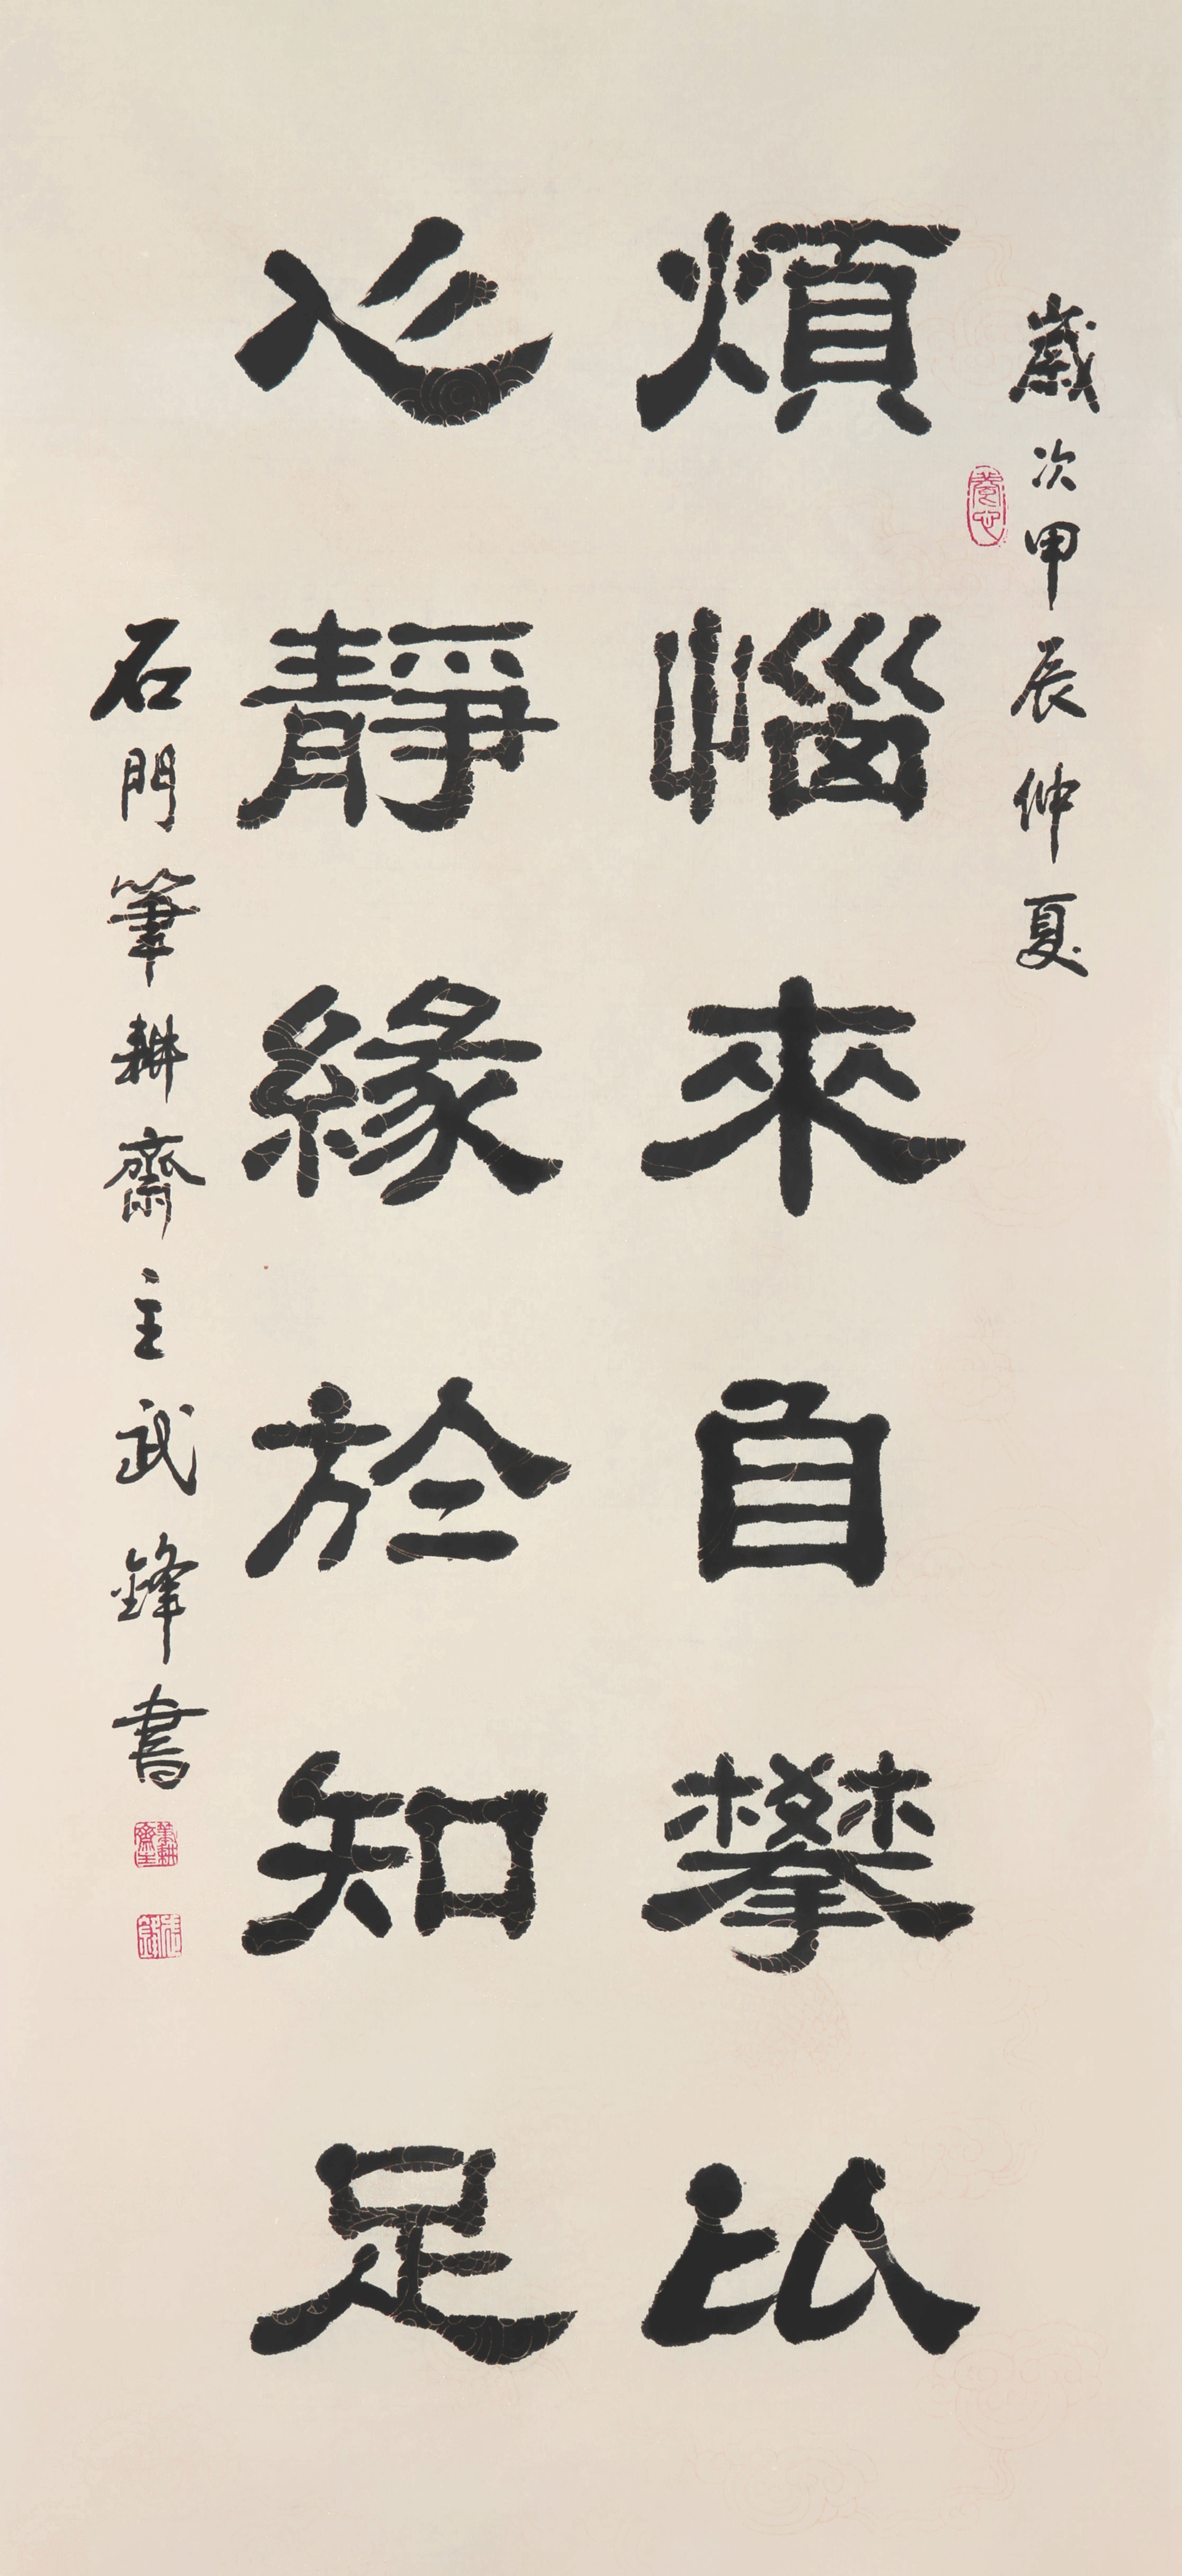 歲次甲辰仲夏
養心
煩惱來自攀比
心靜緣於知足
石門筆耕齋主武鋒書
筆耕齋主